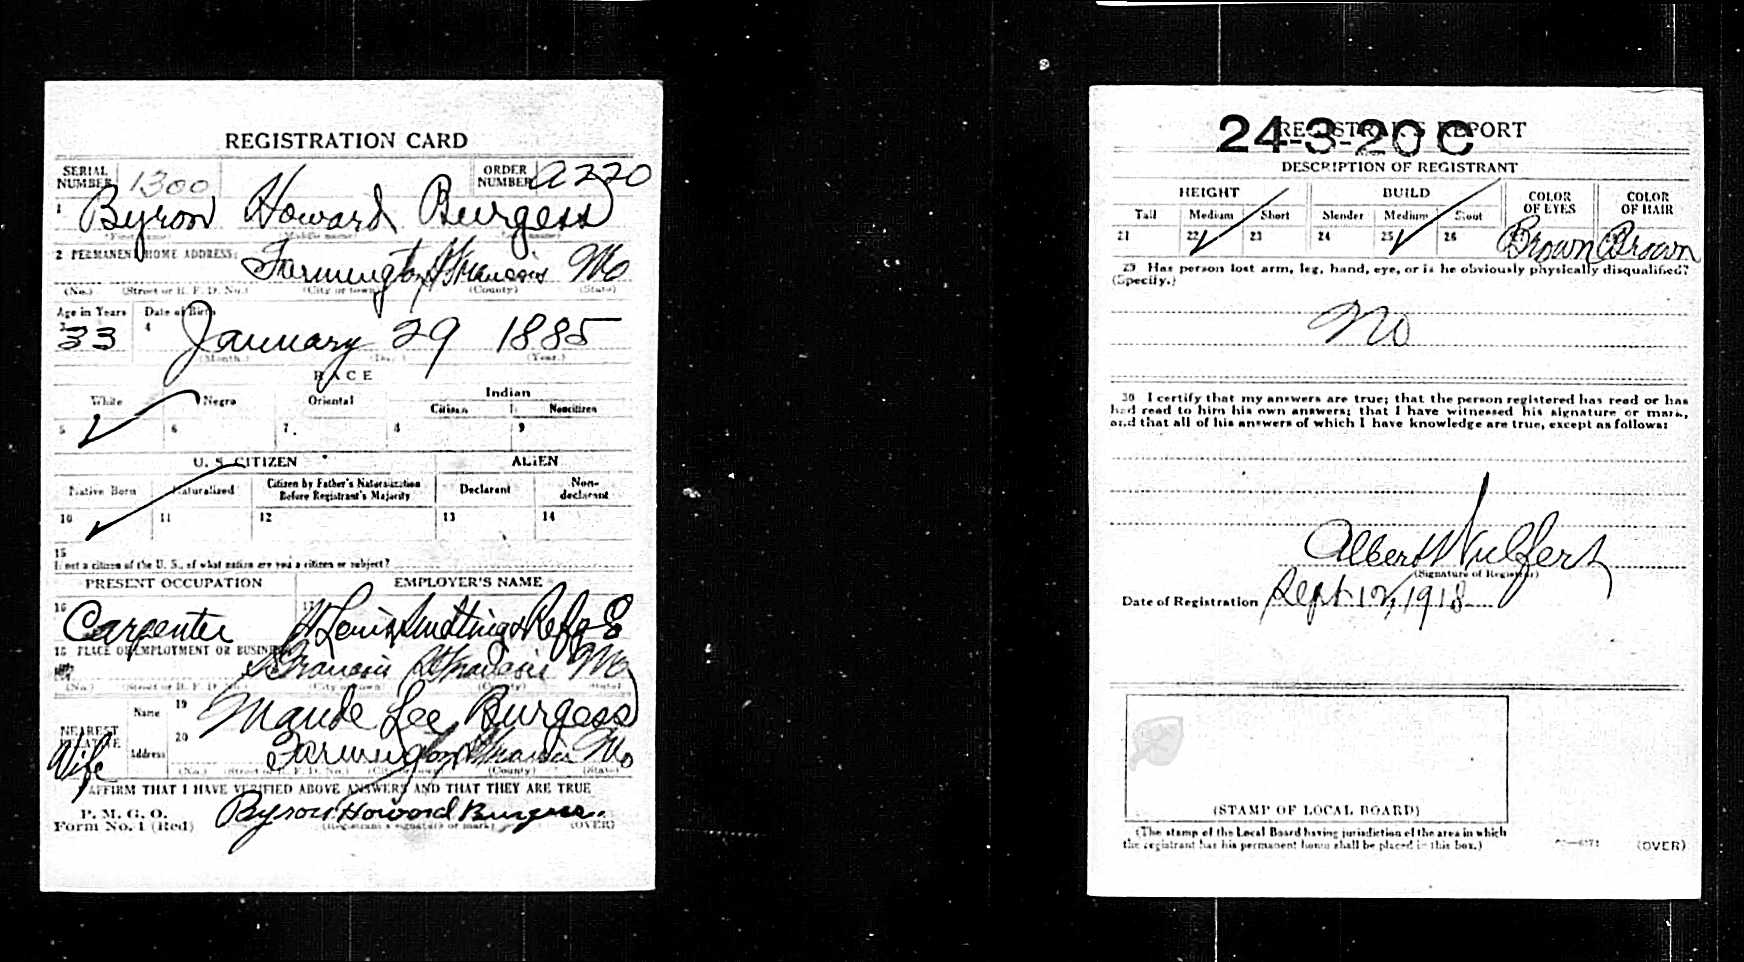 REGISTRATION CARD
SERIAL NUMBER 1300 ORDER NUMBER A220
1 Byron Howard Burgess
(First name) (Middle name) (Last name)
2 PERMANENT HOME ADDRESS:
Farmington St Francois Mo
(No.) (Street or R. F. D. No.) (City or town) (County) (State)
Age in Years Date of Birth
3 33 4 January 29 1885
(Month.) (Day.) (Year.)
RACE
White Negro Oriental Indian
Citizen Noncitizen
5 ✓ 6 7 8 9
U. S. CITIZEN ALIEN
Native Born Naturalized Citizen by Father's Naturalization Before Registrant's Majority Declarant Non-declarant
10 ✓ 11 12 13 14
15
If not a citizen of the U. S., of what nation are you a citizen or subject?
PRESENT OCCUPATION EMPLOYER'S NAME
16 Carpenter 17 St Louis Smelting & Refg Co
18 PLACE OF EMPLOYMENT OR BUSINESS:
St Francois St Francois Mo
(No.) (Street or R. F. D. No.) (City or town) (County) (State)
NEAREST RELATIVE Name 19 Maude Lee Burgess
Wife Address 20 Farmington St Francois Mo
(No.) (Street or R. F. D. No.) (City or town) (County) (State)
I AFFIRM THAT I HAVE VERIFIED ABOVE ANSWERS AND THAT THEY ARE TRUE
P. M. G. O.
Form No. 1 (Red) Byron Howard Burgess
(Registrant's signature or mark) (OVER)
REGISTRAR'S REPORT
24-3-20 C
DESCRIPTION OF REGISTRANT
HEIGHT BUILD COLOR OF EYES COLOR OF HAIR
Tall Medium Short Slender Medium Stout
21 22 ✓ 23 24 25 ✓ 26 Brown Brown
29 Has person lost arm, leg, hand, eye, or is he obviously physically disqualified?
(Specify.)
No
30 I certify that my answers are true; that the person registered has read or has
had read to him his own answers; that I have witnessed his signature or mark,
and that all of his answers of which I have knowledge are true, except as follows:
Albert Wulfert
(Signature of Registrar)
Date of Registration Sept 12, 1918
(STAMP OF LOCAL BOARD)
(The stamp of the Local Board having jurisdiction of the area in which
the registrant has his permanent home shall be placed in this box.)
(OVER)